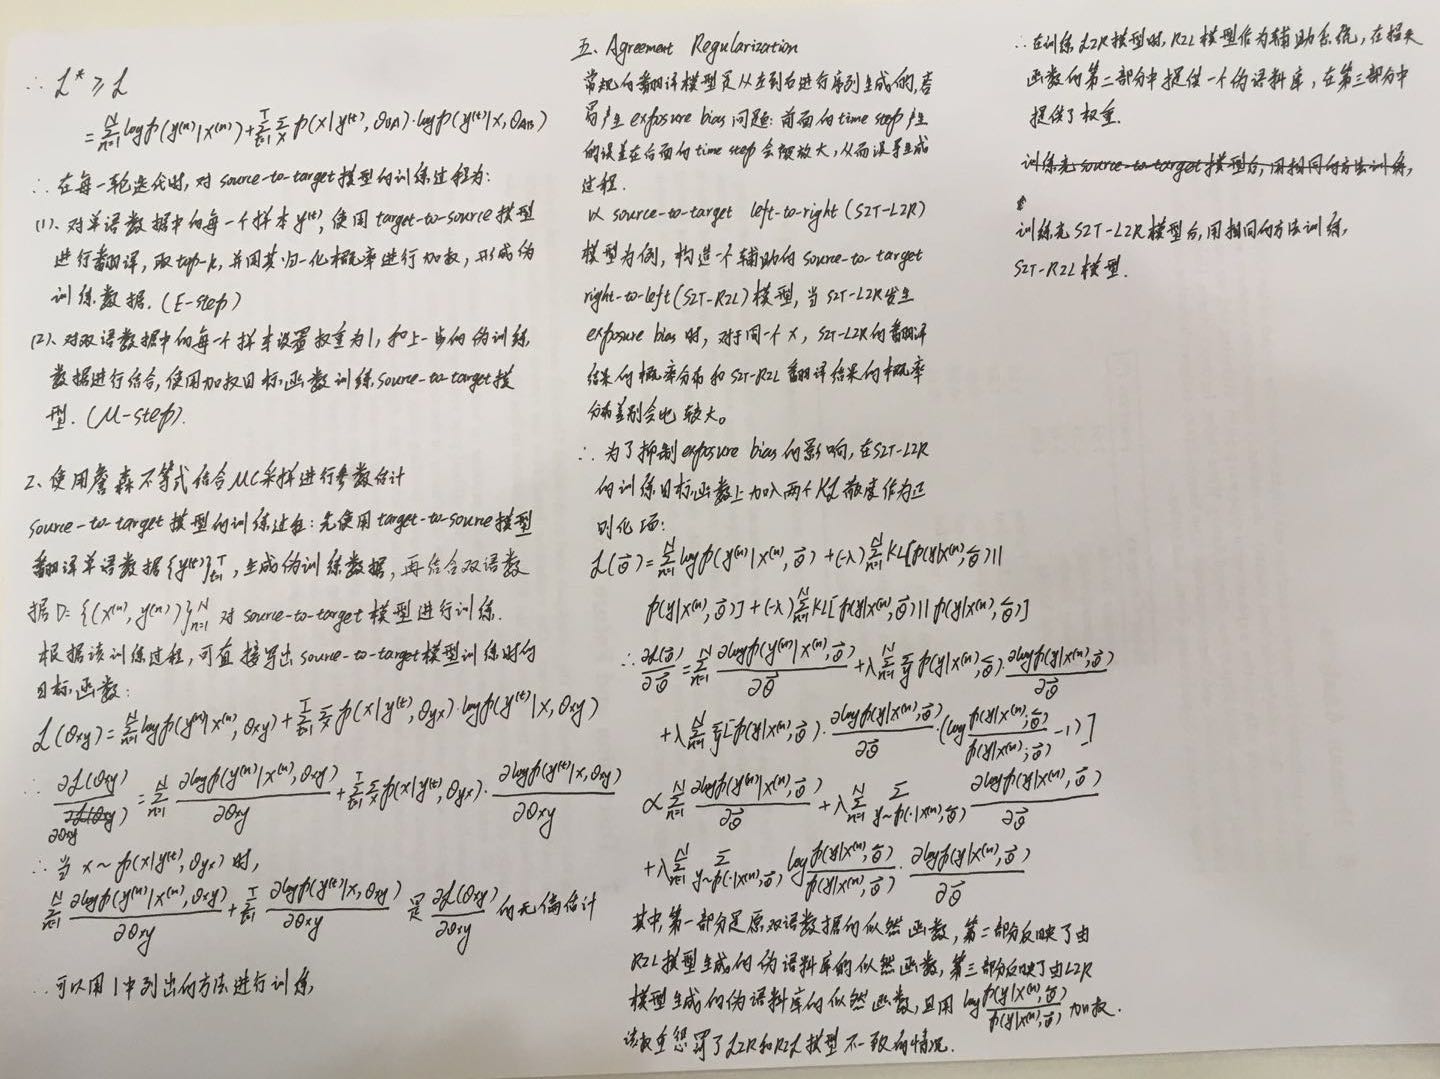 ∴ L* ≥ L
= Σ_{n=1}^N log p(y^(n)|x^(n)) + Σ_{t=1}^T Σ_x p(x|y^(t), θ_BA)·log p(y^(t)|x, θ_AB)
∴ 在每一轮迭代时, 对 source-to-target模型的训练过程为:
(1)、对单语数据中的每一个样本y^(t), 使用 target-to-source 模型
进行翻译, 取top-k, 并用其归一化概率进行加权, 形成伪
训练数据. (E-step)
(2)、对双语数据中的每一个样本设置权重为1, 和上一步的伪训练
数据进行结合, 使用加权目标函数训练 source-to-target模
型. (M-step).
2、使用詹森不等式结合MC采样进行参数估计
source-to-target 模型的训练过程: 先使用target-to-source模型
翻译单语数据{y^(t)}_{t=1}^T, 生成伪训练数据, 再结合双语数
据D={(x^(n), y^(n))}_{n=1}^N 对 source-to-target 模型进行训练.
根据该训练过程, 可直接写出 source-to-target模型训练时的
目标函数:
L(θxy) = Σ_{n=1}^N log p(y^(n)|x^(n), θxy) + Σ_{t=1}^T Σ_x p(x|y^(t), θyx)·log p(y^(t)|x, θxy)
∴ ∂L(θxy)/∂θxy = Σ_{n=1}^N ∂log p(y^(n)|x^(n), θxy)/∂θxy + Σ_{t=1}^T Σ_x p(x|y^(t), θyx)·∂log p(y^(t)|x, θxy)/∂θxy
∴ 当 x ~ p(x|y^(t), θyx) 时,
Σ_{n=1}^N ∂log p(y^(n)|x^(n), θxy)/∂θxy + Σ_{t=1}^T ∂log p(y^(t)|x, θxy)/∂θxy 是 ∂L(θxy)/∂θxy 的无偏估计
∴ 可以用1中列出的方法进行训练,
五、Agreement Regularization
常规的翻译模型是从左到右进行序列生成的, 容
易产生 exposure bias 问题: 前面的time step产生
的误差在后面的time step 会被放大, 从而误导生成
过程.
以 source-to-target left-to-right (S2T-L2R)
模型为例, 构造一个辅助的 source-to-target
right-to-left (S2T-R2L) 模型, 当 S2T-L2R发生
exposure bias 时, 对于同一个 x, S2T-L2R的翻译
结果的概率分布和S2T-R2L 翻译结果的概率
分布差别会比较大。
∴ 为了抑制exposure bias 的影响, 在S2T-L2R
的训练目标函数上加入两个KL散度作为正
则化项:
L(θ→) = Σ_{n=1}^N log p(y^(n)|x^(n), θ→) + (-λ) Σ_{n=1}^N KL[p(y|x^(n), θ←)||
p(y|x^(n), θ→)] + (-λ) Σ_{n=1}^N KL[p(y|x^(n), θ→)||p(y|x^(n), θ←)]
∴ ∂L(θ→)/∂θ→ = Σ_{n=1}^N ∂log p(y^(n)|x^(n), θ→)/∂θ→ + λ Σ_{n=1}^N Σ_y p(y|x^(n), θ←)·∂log p(y|x^(n), θ→)/∂θ→
+ λ Σ_{n=1}^N Σ_y [p(y|x^(n), θ→)·∂log p(y|x^(n), θ→)/∂θ→·(log p(y|x^(n), θ←)/p(y|x^(n), θ→) - 1)]
∝ Σ_{n=1}^N ∂log p(y^(n)|x^(n), θ→)/∂θ→ + λ Σ_{n=1}^N Σ_{y~p(·|x^(n), θ←)} ∂log p(y|x^(n), θ→)/∂θ→
+ λ Σ_{n=1}^N Σ_{y~p(·|x^(n), θ→)} log p(y|x^(n), θ←)/p(y|x^(n), θ→)·∂log p(y|x^(n), θ→)/∂θ→
其中, 第一部分是原双语数据的似然函数, 第二部分反映了由
R2L模型生成的伪语料库的似然函数, 第三部分反映了由L2R
模型生成的伪语料库的似然函数, 且用 log p(y|x^(n), θ←)/p(y|x^(n), θ→) 加权.
该权重惩罚了L2R和R2L模型不一致的情况.
∴ 在训练L2R模型时, R2L模型作为辅助系统, 在损失
函数的第二部分中提供一个伪语料库, 在第三部分中
提供了权重.
训练完 source-to-target模型后, 用相同的方法训练,
训练完 S2T-L2R 模型后, 用相同的方法训练,
S2T-R2L 模型.